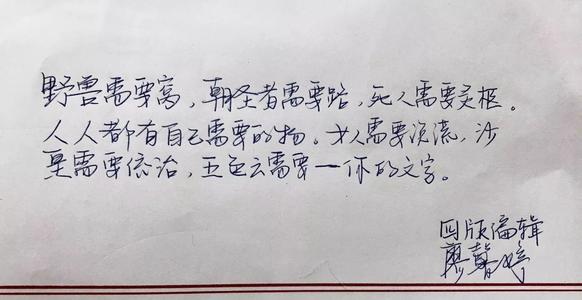 野兽需要窝，朝圣者需要路，死人需要灵柩。
人人都有自己需要的物。女人需要，沙
皇需要统治，五色云需要一你的文字。
四版编辑
廖馨婷